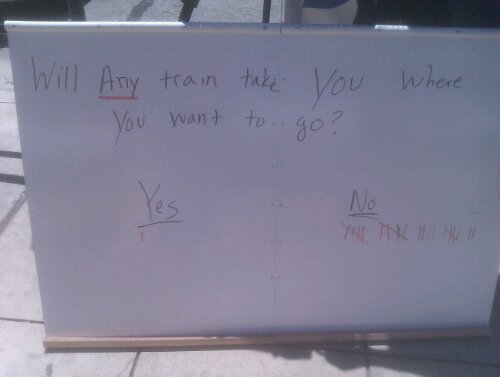 Will Any train take YOU where
you want to.. go?
Yes No